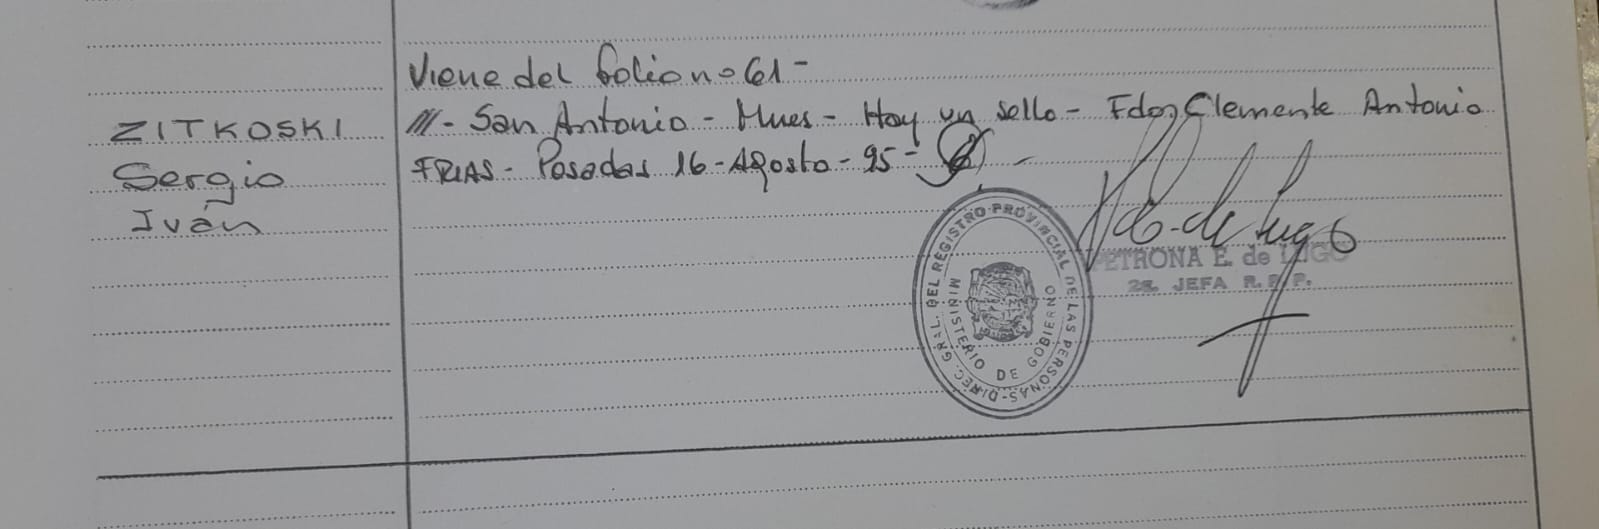 Viene del folio nº 61-
ZITKOSKI
///- San Antonio - Mnes - Hay un sello - Fdo. Clemente Antonio
Sergio
FRIAS - Posadas 16 - Agosto - 95 -
Iván
DIREC. GRAL. DEL REGISTRO PROVINCIAL DE LAS PERSONAS
MINISTERIO DE GOBIERNO
PETRONA E. de LUGO
2a. JEFA R.P.P.